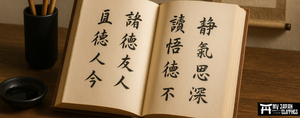 静氣思深
讀悟德不
諸德友人
德人今
MY JAPAN
CLOTHES